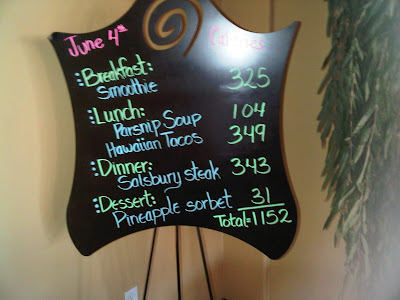 June 4th Calories
:Breakfast:
Smoothie 325
:Lunch:
Parsnip Soup 104
Hawaiian Tacos 349
:Dinner:
Salsbury steak 343
:Dessert:
Pineapple sorbet 31
Total=1152